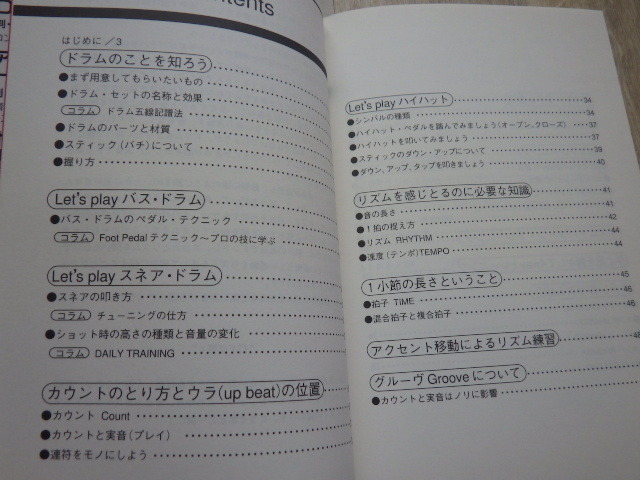 ntents
はじめに／3
ドラムのことを知ろう
●まず用意してもらいたいもの
●ドラム・セットの名称と効果
コラム ドラム五線記譜法
●ドラムのパーツと材質
●スティック（バチ）について
●握り方
Let's play バス・ドラム
●バス・ドラムのペダル・テクニック
コラム Foot Pedal テクニック〜プロの技に学ぶ
Let's play スネア・ドラム
●スネアの叩き方
コラム チューニングの仕方
●ショット時の高さの種類と音量の変化
コラム DAILY TRAINING
カウントのとり方とウラ（up beat）の位置
●カウント Count
●カウントと実音（プレイ）
●連符をモノにしよう
Let's play ハイハット
●シンバルの種類 34
●ハイハット・ペダルを踏んでみましょう（オープン、クローズ） 37
●ハイハットを叩いてみましょう 37
●スティックのダウン・アップについて 39
●ダウン、アップ、タップを叩きましょう 40
リズムを感じとるのに必要な知識 41
●音の長さ 41
●1拍の捉え方 42
●リズム RHYTHM 44
●速度（テンポ）TEMPO 44
1小節の長さということ 45
●拍子 TiME 46
●混合拍子と複合拍子 46
アクセント移動によるリズム練習
グルーヴ Groove について
●カウントと実音はノリに影響